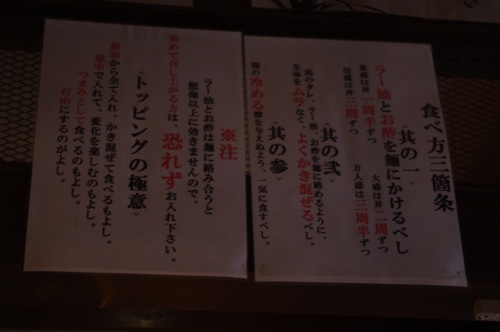 食べ方三箇条
〈其の一〉
ラー油とお酢を麺にかけるべし
並盛は丼一周半ずつ 大盛は丼二周ずつ
三周ずつ 三周半ずつ
〈其の弐〉
底のタレ、ラー油、お酢を麺に絡めるように、
全体をムラなく、よくかき混ぜるべし。
〈其の参〉
麺の冷める隙を与えぬよう、一気に食すべし。
※注
ラー油とお酢は麺に絡み合うと
想像以上に効きませんので、
初めて召し上がる方は、恐れずお入れ下さい。
〈トッピングの極意〉
最初から全て入れ、かき混ぜて食べるもよし。
途中で入れて、変化を楽しむのもよし。
つまみとして食べるのもよし。
自由にするのがよし。